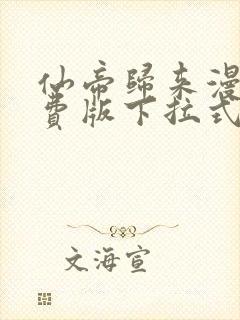 仙帝歸来漫
費版下拉式
文海宣